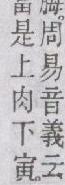 周易音義云
是上肉下寅。